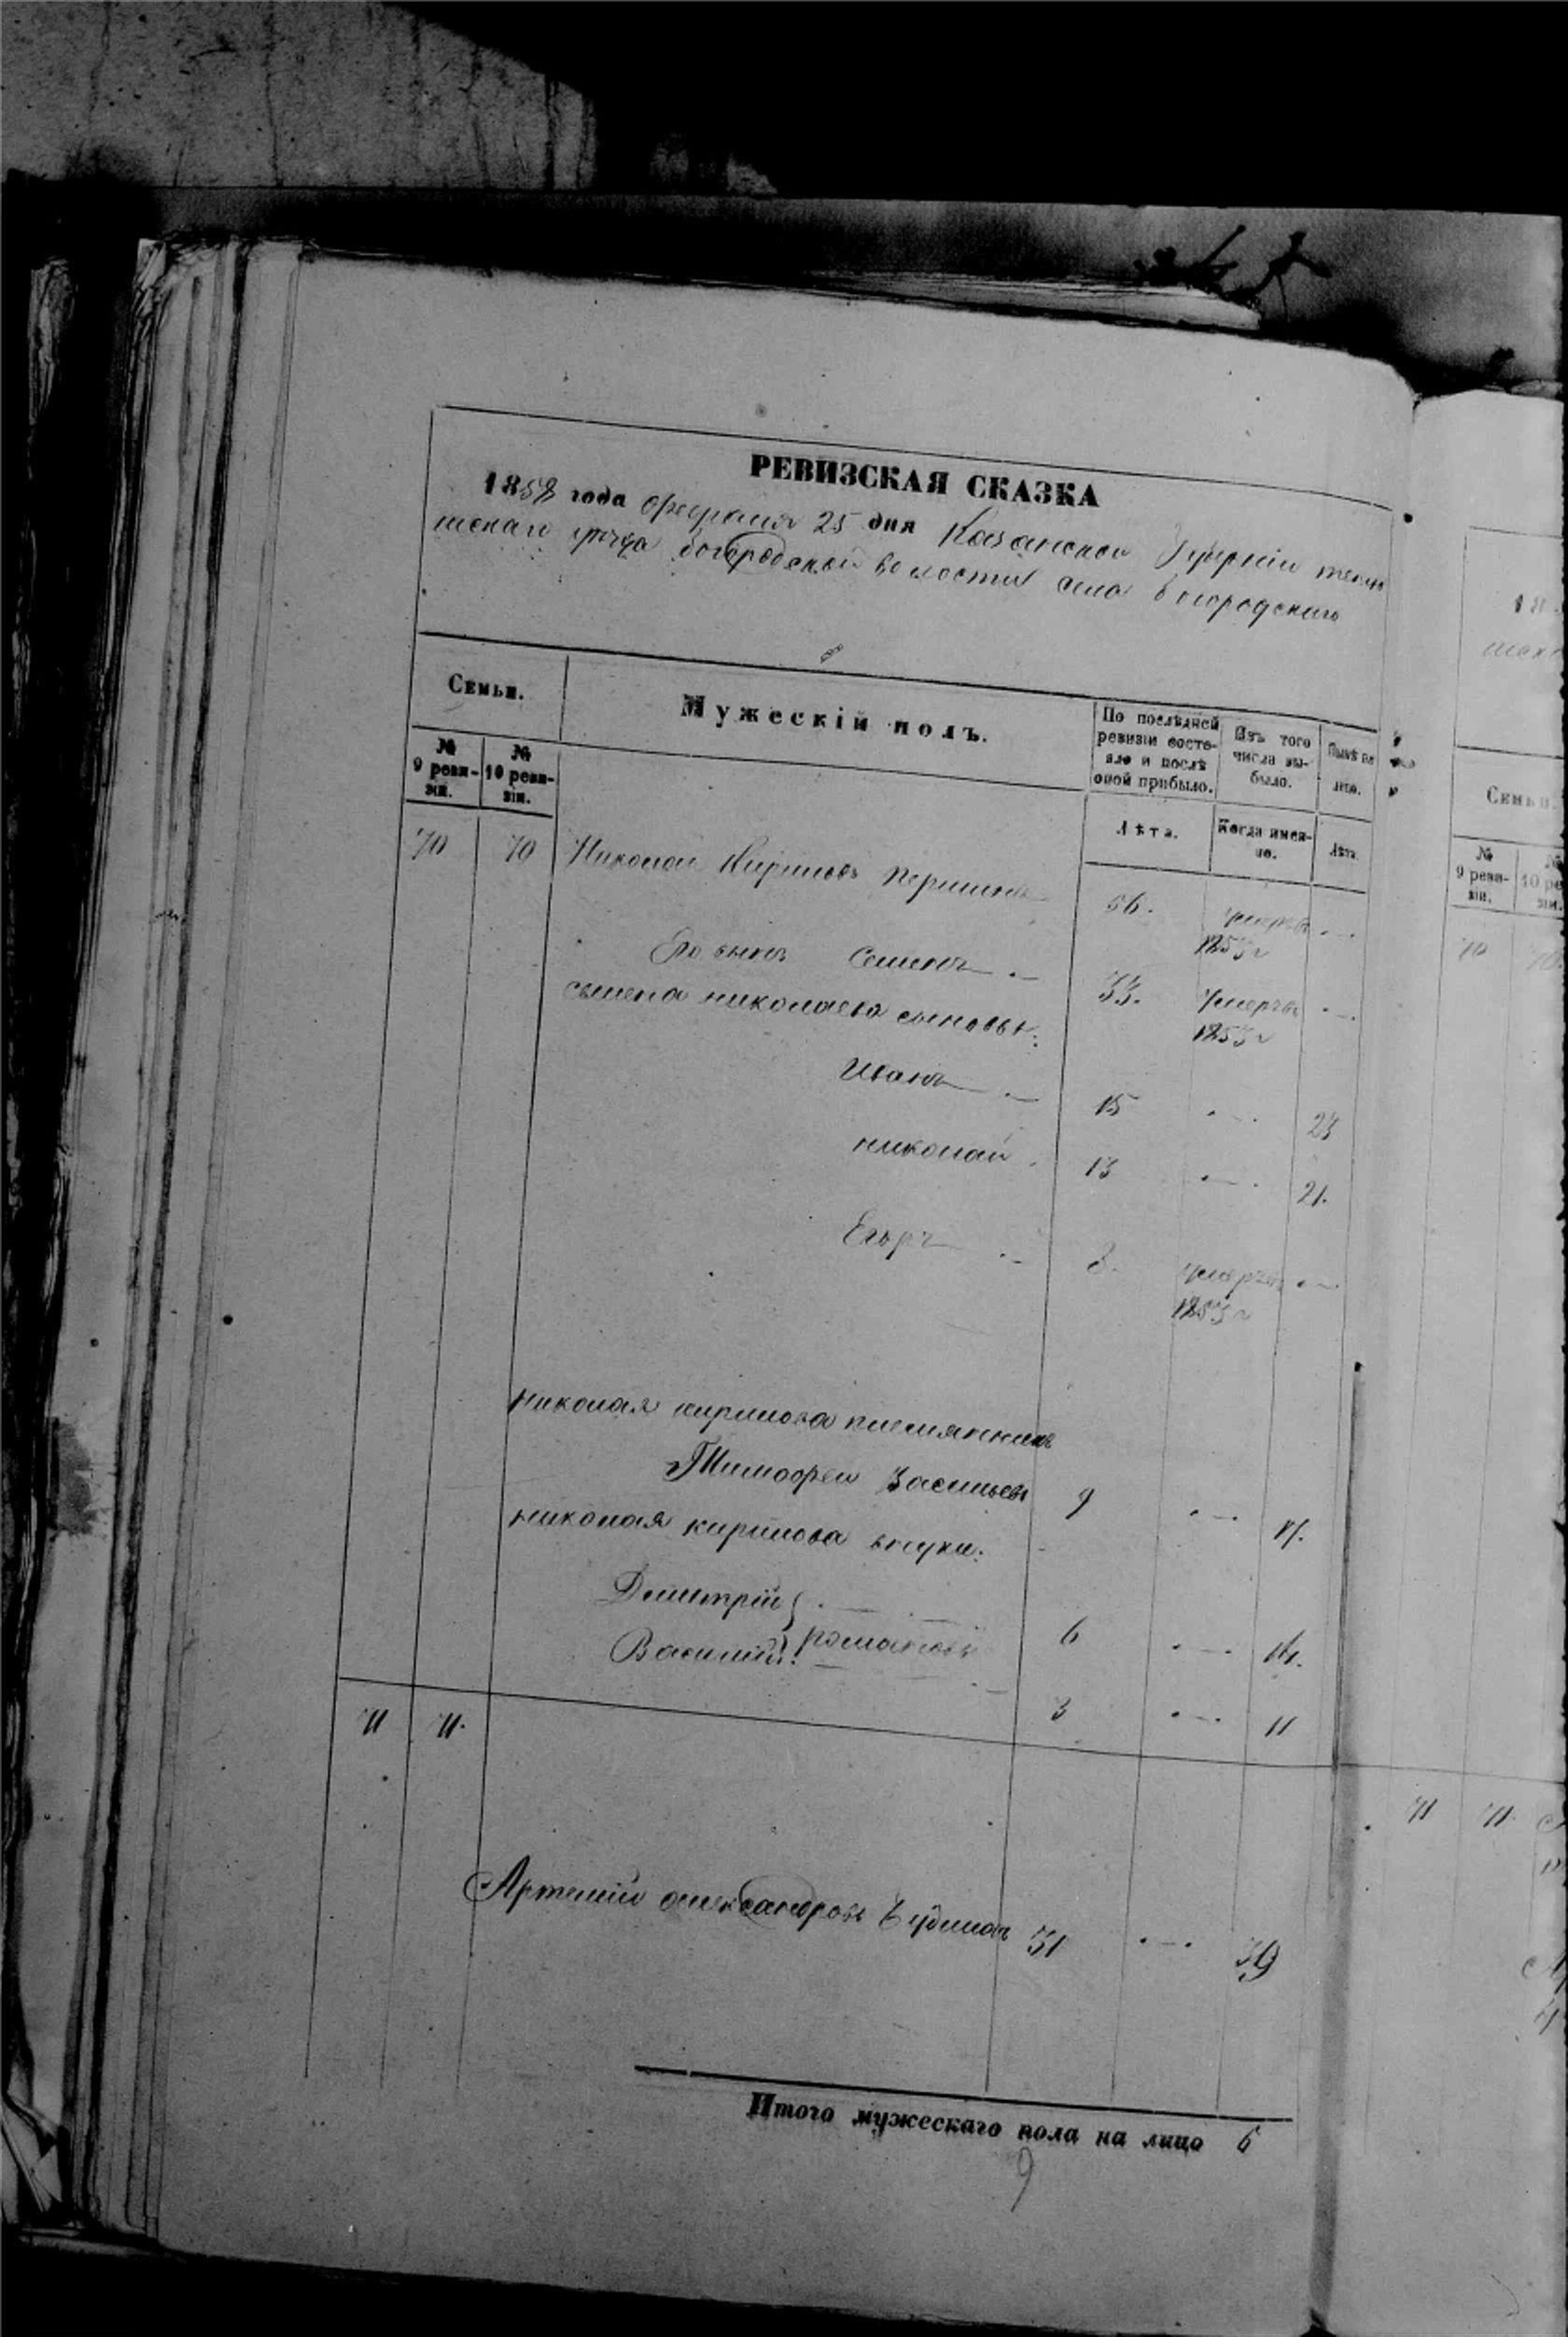 РЕВИЗСКАЯ СКАЗКА
1858 года февраля 25 дня Казанской Губерніи тетю
шскаго уезда Богородской волости села Богородскаго
Семьи.
Мужескій полъ.
По послѣдней ревизіи состояло и послѣ оной прибыло.
Изъ того числа выбыло.
Нынѣ на лицо.
№ 9 ревизіи.
№ 10 ревизіи.
Лѣта.
Когда именно.
Лѣта.
70 70 Николай Кириловъ Першинъ 56. умеръ 1853 г
Его сынъ Семенъ 33. умеръ 1853 г
семена николаева сыновья:
Иванъ 15 23
николай 13 21.
Егоръ 3. умеръ 1853 г
николая кирилова племянникъ
Тимофей Васильевъ 9 17.
николая кирилова внуки:
Дмитрій
Василій романовы
6 14.
3 11
71 71.
Артемій александровъ 31 39
Итого мужескаго пола на лицо 6
9
18
шска
Семьи.
№ 9 ревизіи.
№ 10 ре
70 70
71 71.